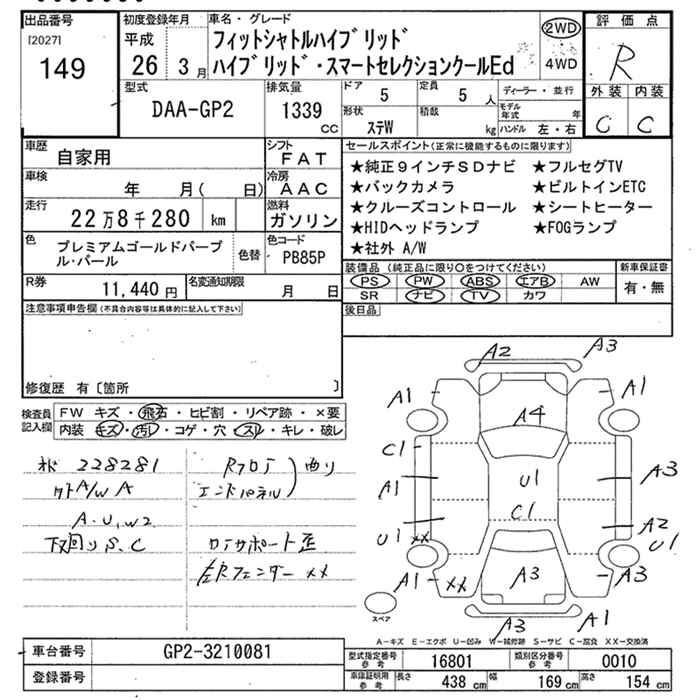 出品番号
[2027]
149
初度登録年月
平成
26 3月
車名・グレード
フィットシャトルハイブリッド
ハイブリッド・スマートセレクションクールEd
2WD
4WD
評価点
R
外装 内装
C C
型式
DAA-GP2
排気量
1339
cc
ドア
5
定員
5 人
形状
ステW
積載
kg
ディーラー・並行
モデル年式 年
ハンドル 左・右
車歴
自家用
シフト
FAT
車検
年 月( 日)
冷房
AAC
走行
22万8千280 km
燃料
ガソリン
色
プレミアムゴールドパープル・パール
色替
色コード
PB85P
R券
11,440 円
名変通知期限
月 日
セールスポイント(正常に機能するものに限ります)
★純正9インチSDナビ ★フルセグTV
★バックカメラ ★ビルトインETC
★クルーズコントロール ★シートヒーター
★HIDヘッドランプ ★FOGランプ
★社外 A/W
装備品(純正品に限り○をつけてください)
PS PW ABS エアB AW
SR ナビ TV カワ
新車保証書
有・無
後日品
注意事項申告欄(不具合内容等は具体的に記入して下さい)
修復歴 有〔箇所 〕
検査員記入欄
FW キズ・飛石・ヒビ割・リペア跡・×要
内装 キズ・汚れ・コゲ・穴・スレ・キレ・破レ
228281
A/W A
A.U.W2
下回りS.C
Rフロア
エンドパネル
曲り
コアサポート歪
左Rフェンダー XX
A2
A3
A1
A1
A4
C1
A1
U1
A3
C1
A2
U1 XX
U1
A1
XX
A3
A3
A3
A1
スペア
A-キズ E-エクボ U-凹み W-補修跡 S-サビ C-腐食 XX-交換済
車台番号
GP2-3210081
登録番号
型式指定番号
参考
16801
類別区分番号
参考
0010
車庫証明用
参考
長さ
438 cm
幅
169 cm
高さ
154 cm